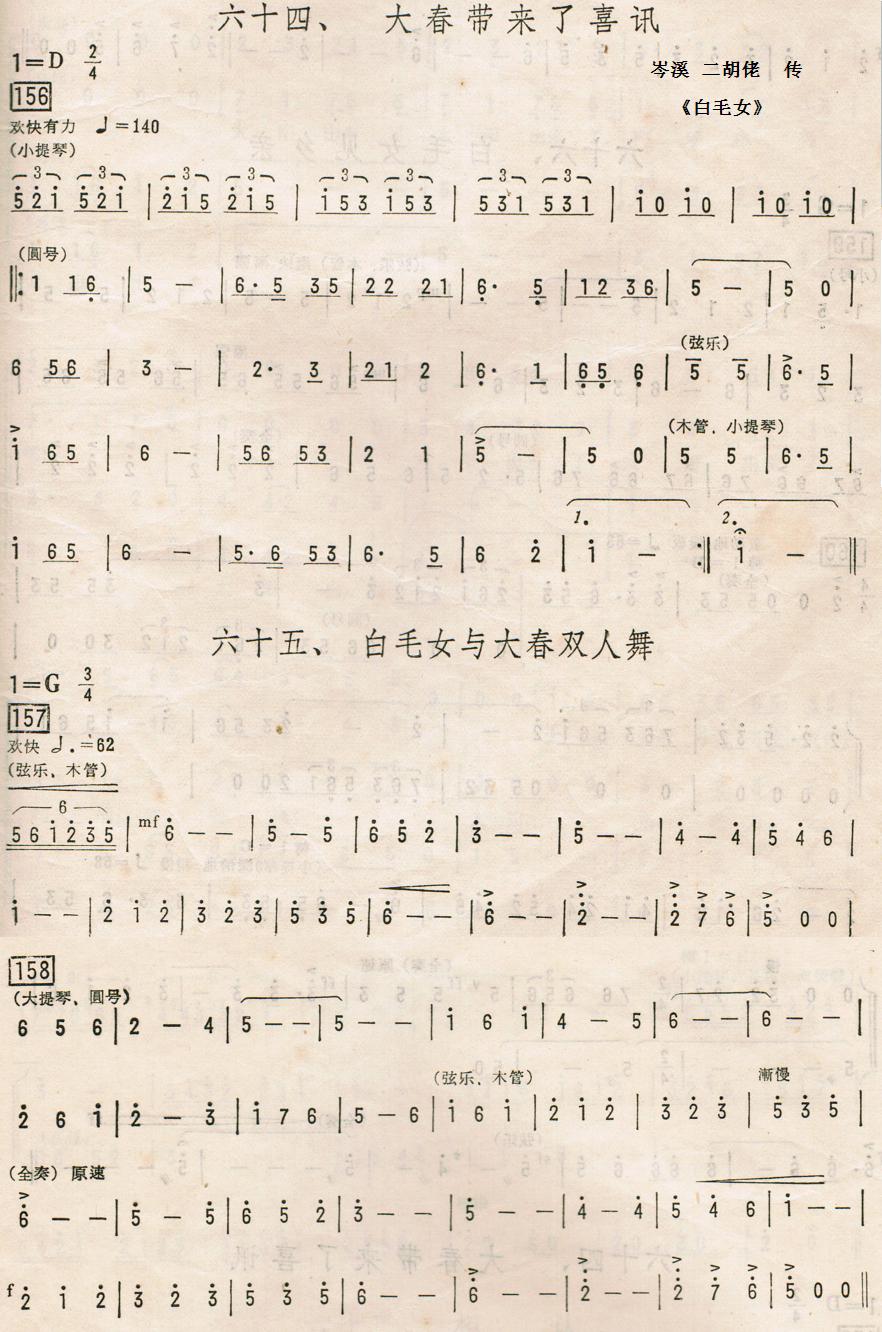 六十四、 大春带来了喜讯
1=D 2/4
岑溪 二胡佬 传
156
《白毛女》
欢快有力 ♩=140
(小提琴)
3 3 3 3 3 3 3 3
5̇2̇1̇ 5̇2̇1̇ | 2̇1̇5 2̇1̇5 | 1̇53 1̇53 | 531 531 | 1̇0 1̇0 | 1̇0 1̇0
(圆号)
‖: 1 16̣ | 5 — | 6̣·5̣ 35 | 22 21 | 6̣· 5̣ | 12 36 | 5 — | 5 0 |
(弦乐)
6 56 | 3 — | 2· 3 | 21 2 | 6̣· 1 | 6̣5̣ 6̣ | 5 5 | 6· 5 |
(木管、小提琴)
1̇ 65 | 6 — | 56 53 | 2 1 | 5 — | 5 0 | 5 5 | 6· 5 |
1. 2.
1̇ 65 | 6 — | 5·6 53 | 6· 5 | 6 2̇ | 1̇ — :‖ 1̇ — ‖
六十五、 白毛女与大春双人舞
1=G 3/4
157
欢快 ♩.=62
(弦乐、木管)
6
561̇2̇3̇5̇ | mf 6̇ — — | 5̇ — 5̇ | 6̇ 5̇ 2̇ | 3̇ — — | 5̇ — — | 4̇ — 4̇ | 5̇ 4̇ 6 |
1̇ — — | 2̇ 1̇ 2̇ | 3̇ 2̇ 3̇ | 5̇ 3̇ 5̇ | 6̇ — — | 6̇ — — | 2̈ — — | 2̈ 7̇ 6̇ | 5̇ 0 0 |
158
(大提琴、圆号)
6 5 6 | 2 — 4 | 5 — — | 5 — — | 1̇ 6 1̇ | 4 — 5 | 6 — — | 6 — — |
(弦乐、木管) 渐慢
2̇ 6 1̇ | 2̇ — 3̇ | 1̇ 7 6 | 5 — 6 | 1̇ 6 1̇ | 2̇ 1̇ 2̇ | 3̇ 2̇ 3̇ | 5̇ 3̇ 5̇ |
(全奏) 原速
6̇ — — | 5̇ — 5̇ | 6̇ 5̇ 2̇ | 3̇ — — | 5̇ — — | 4̇ — 4̇ | 5̇ 4̇ 6 | 1̇ — — |
f 2̇ 1̇ 2̇ | 3̇ 2̇ 3̇ | 5̇ 3̇ 5̇ | 6̇ — — | 6̇ — — | 2̈ — — | 2̈ 7̇ 6̇ | 5̇ 0 0 ‖